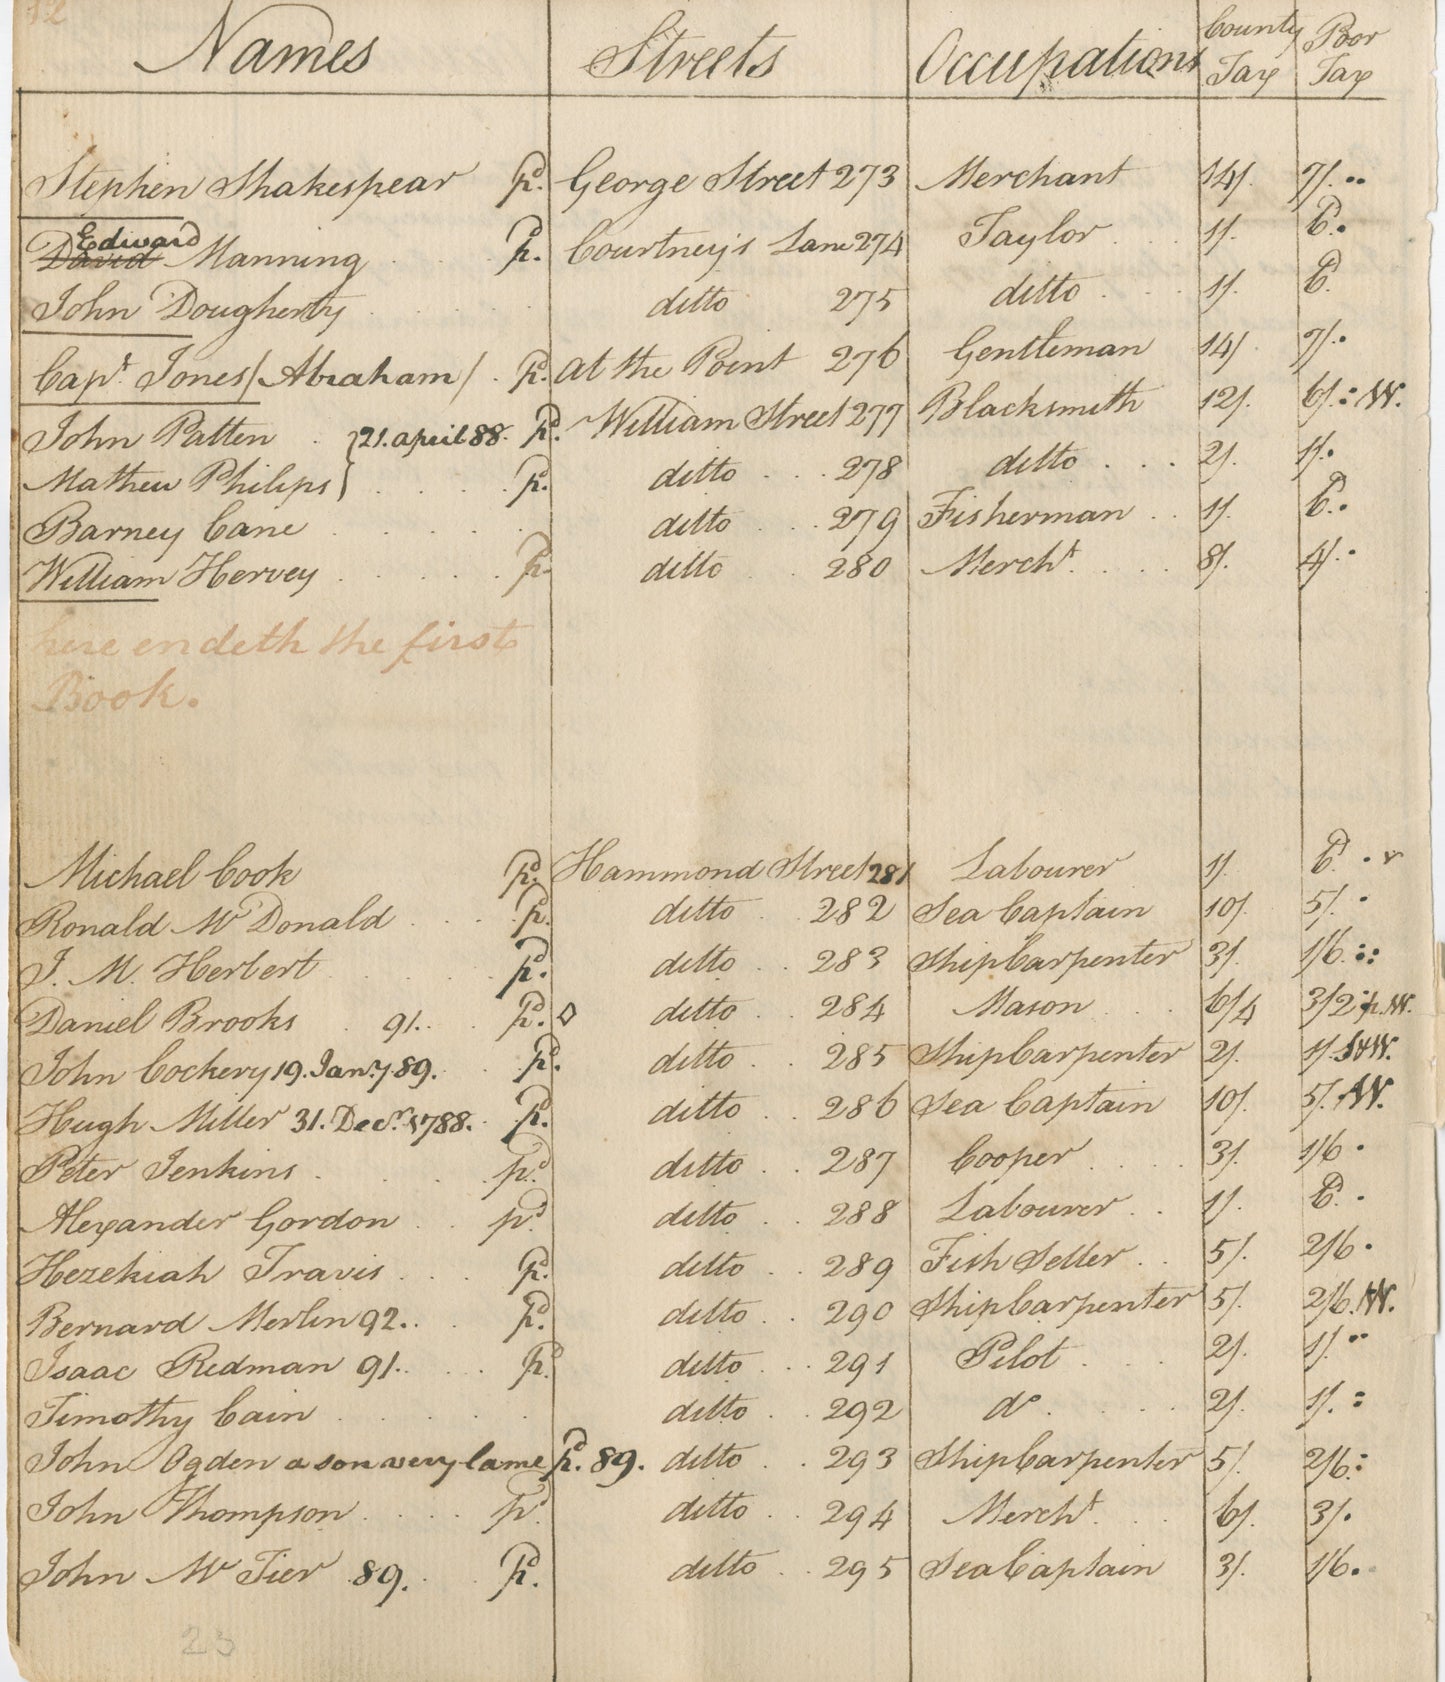 12
Names Streets Occupations County Tax Poor Tax
Stephen Shakespear pd. George Street 273 Merchant 14/. 7/.
Edward
David Manning pd. Courtney's Lane 274 Taylor 1/. 6d.
John Dougherty ditto 275 ditto 1/. 6d.
Capt. Jones/Abraham/ pd. at the Point 276 Gentleman 14/. 7/.
John Patten } 21. april 88. pd. William Street 277 Blacksmith 12/. 6/. W.
Mathew Philips } pd. ditto 278 ditto 2/. 1/.
Barney Cane ditto 279 Fisherman 1/. 6d.
William Hervey pd. ditto 280 Mercht. 8/. 4/.
here endeth the first
Book.
Michael Cook pd. Hammond Street 281 Labourer 1/. 6d.
Ronald Mc Donald pd. ditto 282 Sea Captain 10/. 5/.
J. M. Herbert pd. ditto 283 Ship Carpenter 3/. 1/6.
Daniel Brooks 91. pd. ditto 284 Mason 6/4 3/2 p. W.
John Cockery 19. Jany. 89. pd. ditto 285 Ship Carpenter 2/. 1/. W.
Hugh Miller 31. Decr. 1788. pd. ditto 286 Sea Captain 10/. 5/. W.
Peter Jenkins pd. ditto 287 Cooper 3/. 1/6
Alexander Gordon pd. ditto 288 Labourer 1/. 6d.
Hezekiah Travis pd. ditto 289 Fish Seller 5/. 2/6
Bernard Merlin 92. pd. ditto 290 Ship Carpenter 5/. 2/6. W.
Isaac Redman 91. pd. ditto 291 Pilot 2/. 1/.
Timothy Cain ditto 292 do. 2/. 1/.
John Ogden a son very lame pd. 89. ditto 293 Ship Carpenter 5/. 2/6.
John Thompson pd. ditto 294 Mercht. 6/. 3/.
John Mc Tier 89. pd. ditto 295 Sea Captain 3/. 1/6.
23